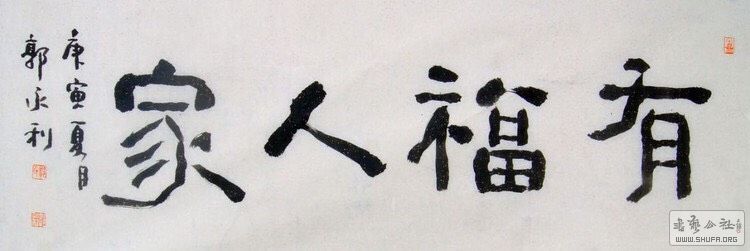 有福人家
庚寅夏月
郭永利
WWW.SHUFA.ORG